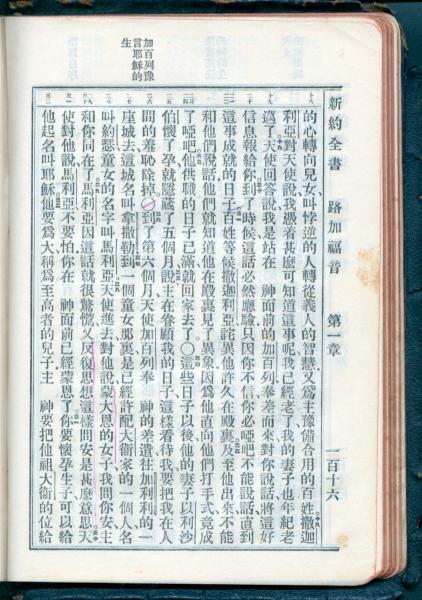 新約全書 路加福音 第一章 一百十六
的心轉向兒女叫悖逆的人轉從義人的智慧又為主豫備合用的百姓撒迦
利亞對天使說我憑着甚麼可知道這事呢我已經老了我的妻子也年紀老
邁了天使回答說我是站在 神面前的加百列奉差而來對你說話將這好
信息報給你到了時候這話必然應驗只因你不信你必啞吧不能說話直到
這事成就的日子百姓等候撒迦利亞詫異他許久在殿裏及至他出來不能
和他們說話他們就知道他在殿裏見了異象因為他直向他們打手式竟成
了啞吧他供職的日子已滿就回家去了○這些日子以後他的妻子以利沙
伯懷了孕就隱藏了五個月說主在眷顧我的日子這樣看待我要把我在人
加百列豫
言耶穌的
生
間的羞恥除掉○到了第六個月天使加百列奉 神的差遣往加利利的一
座城去這城名叫拿撒勒到一個童女那裏是已經許配大衛家的一個人名
叫約瑟童女的名字叫馬利亞天使進去對他說蒙大恩的女子我問你安主
和你同在了馬利亞因這話就很驚慌又反復思想這樣問安是甚麼意思天
使對他說馬利亞不要怕你在 神面前已經蒙恩了你要懷孕生子可以給
他起名叫耶穌他要為大稱為至高者的兒子主 神要把他祖大衛的位給